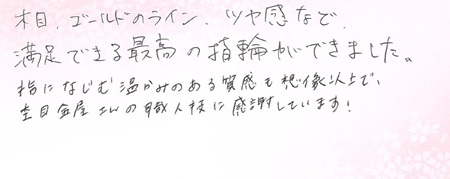 木目、ゴールドのライン、ツヤ感などで、
満足できる最高の指輪ができました。
指になじむ温かみのある質感も想像以上で、
杢目金屋さんの職人様に感謝しています!